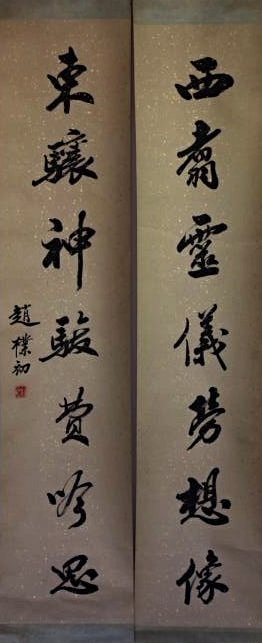 西翥靈儀勞想像
東驤神駿費吟思
趙樸初